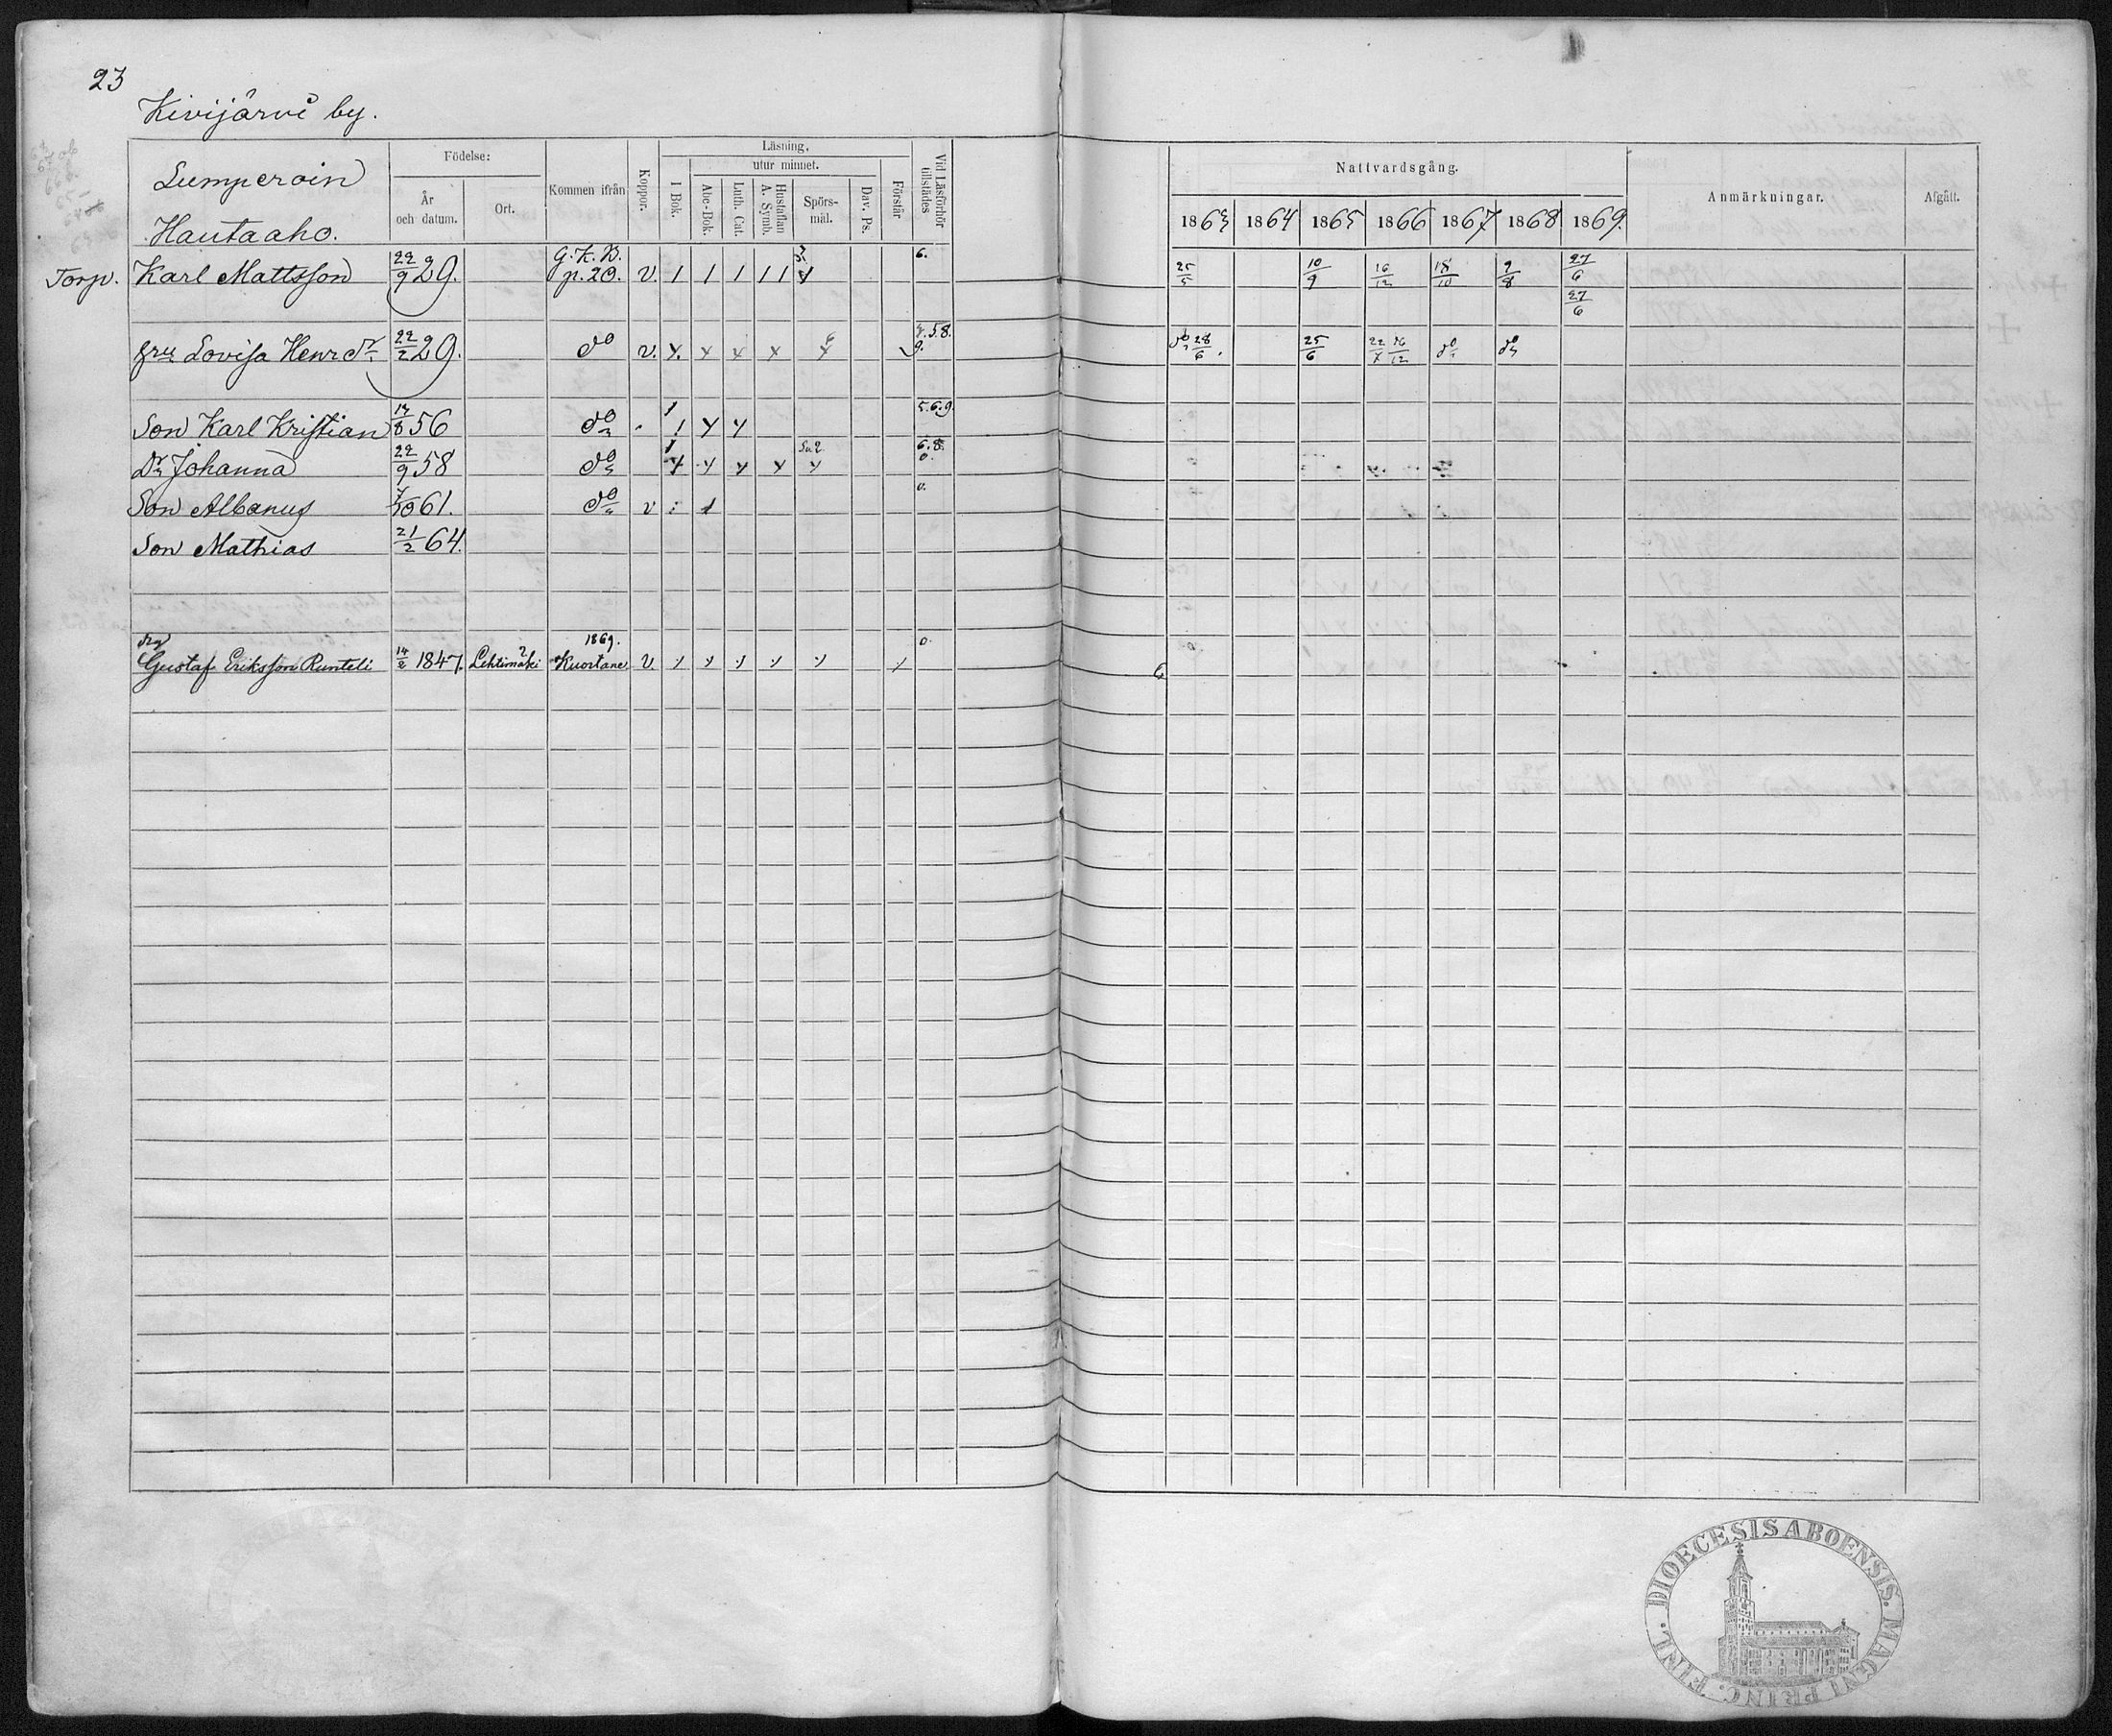 23
Kivijärvi by.
Lumperoin
Hautaaho.
Födelse:
År och datum.
Ort.
Kommen ifrån
Koppor.
Läsning,
I Bok.
utur minnet.
Abc-Bok.
Luth. Cat.
Hustaflan A. Symb.
Spörsmål.
Dav. Ps.
Förstår
Vid Läsförhör tillstädes
Nattvardsgång.
1863 1864 1865 1866 1867 1868 1869.
Anmärkningar.
Afgått.
Torp. Karl Mattsson 22/9 29. G.K.B. p. 20. v. 6. 25/5 10/9 16/12 18/10 9/8 27/6
27/6
Hru Lovisa Henr dr 22/2 29. do v. 5.8. 9. do 28/6. 25/6 do do
Son Karl Kristian 8 56 do 5.6.9.
Dr Johanna 22/9 58 do 6.8. 0.
Son Albanus 61. do v 0.
Son Mathias 21/2 64.
drg Gustaf Eriksson Runteli 14/2 1847. Lehtimäki ? 1869. Kuortane v. 0.
6
DIOECESIS ABOENSIS. MAGNI PRINC. FINL.